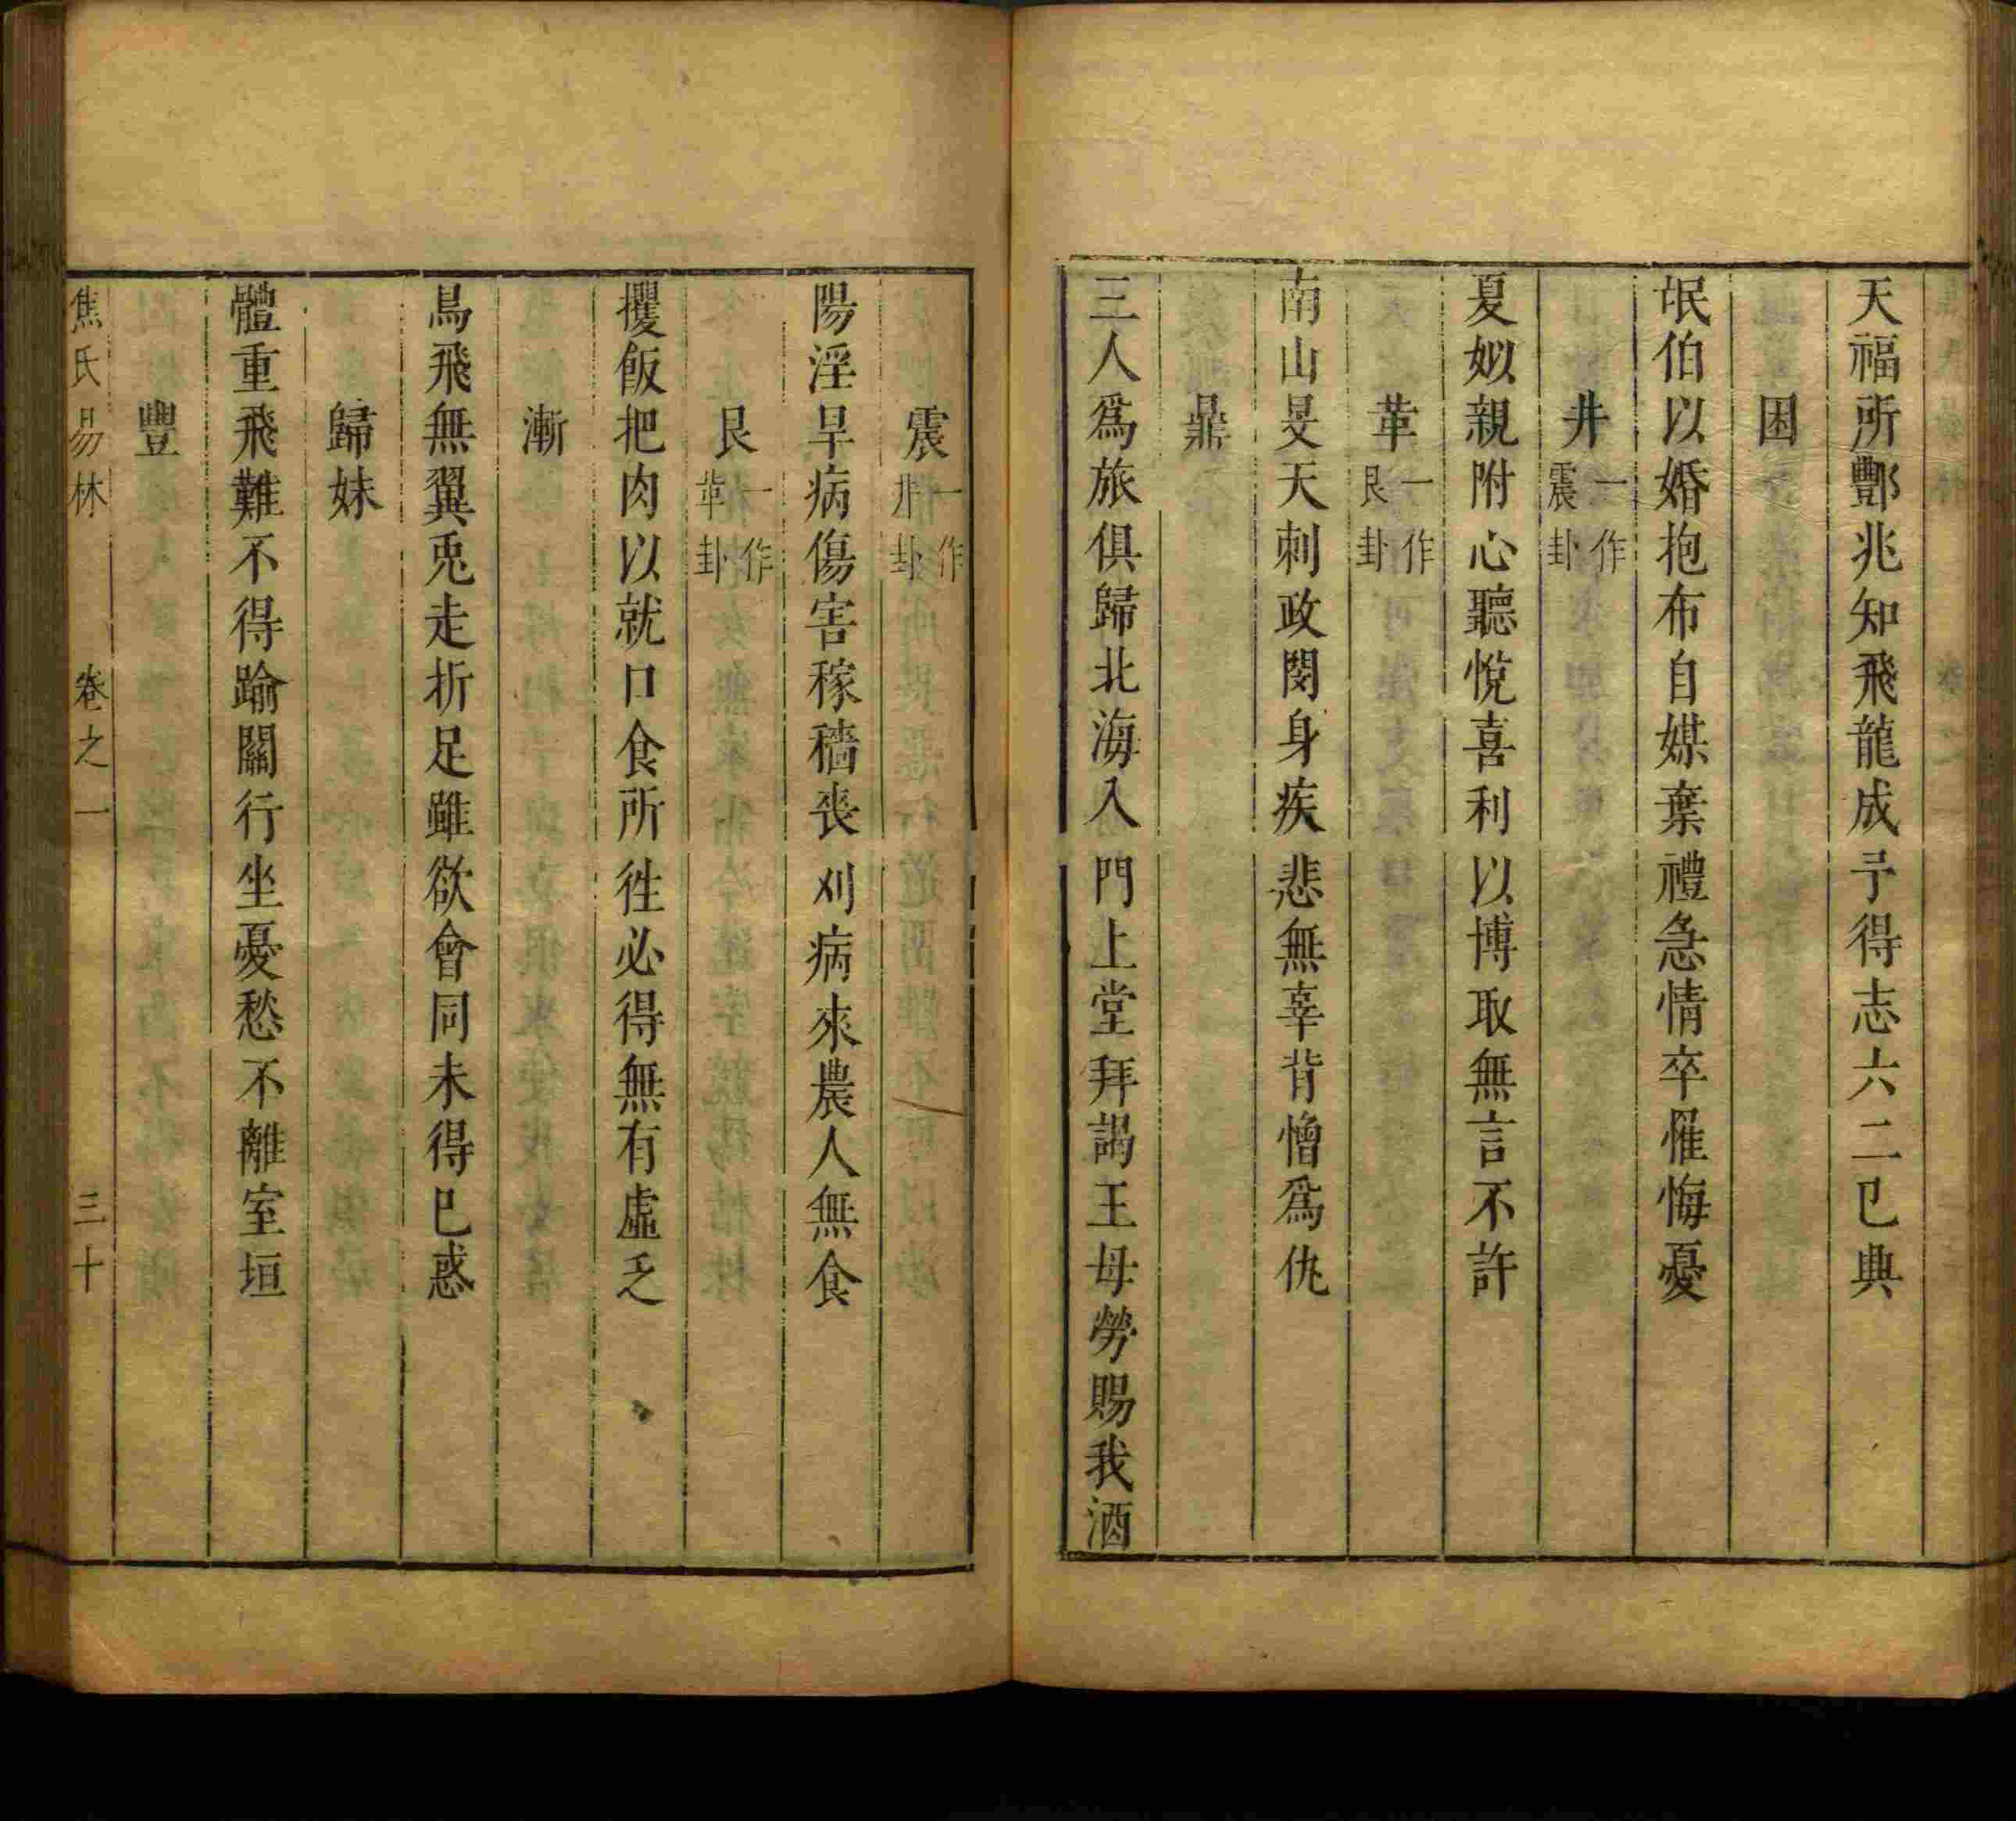 天福所酆兆知飛龍成予得志六二巳典
困
氓伯以婚抱布自媒棄禮急情卒罹悔憂
井一作震卦
夏姒親附心聽悅喜利以博取無言不許
革一作艮卦
南山旻天刺政閔身疾悲無辜背憎為仇
鼎
三人為旅俱歸北海入門上堂拜謁王母勞賜我酒
震一作井卦
陽淫旱病傷害稼穡喪刈病來農人無食
艮一作革卦
攫飯把肉以就口食所徃必得無有虛乏
漸
鳥飛無翼兎走折足雖欲會同未得巳惑
歸妹
體重飛難不得踰關行坐憂愁不離室垣
豐
焦氏易林 卷之一 三十